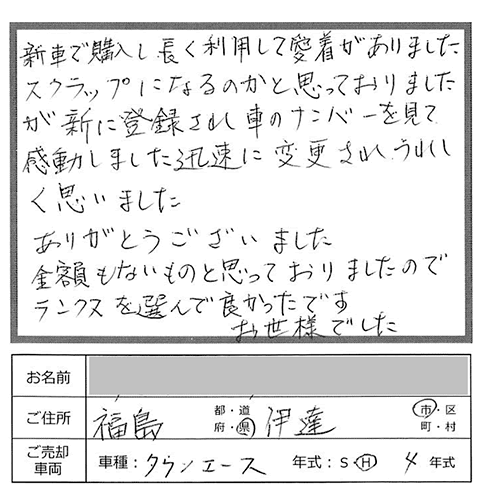 新車で購入し長く利用して愛着がありました
スクラップになるのかと思っておりました
が新に登録され車のナンバーを見て
感動しました迅速に変更されうれし
く思いました
ありがとうございました
金額もないものと思っておりましたので
ランクスを選んで良かったです
お世様でした
お名前
ご住所 福島 都・道府・県 伊達 市・区町・村
ご売却車両 車種：タウンエース 年式：S・H 4 年式